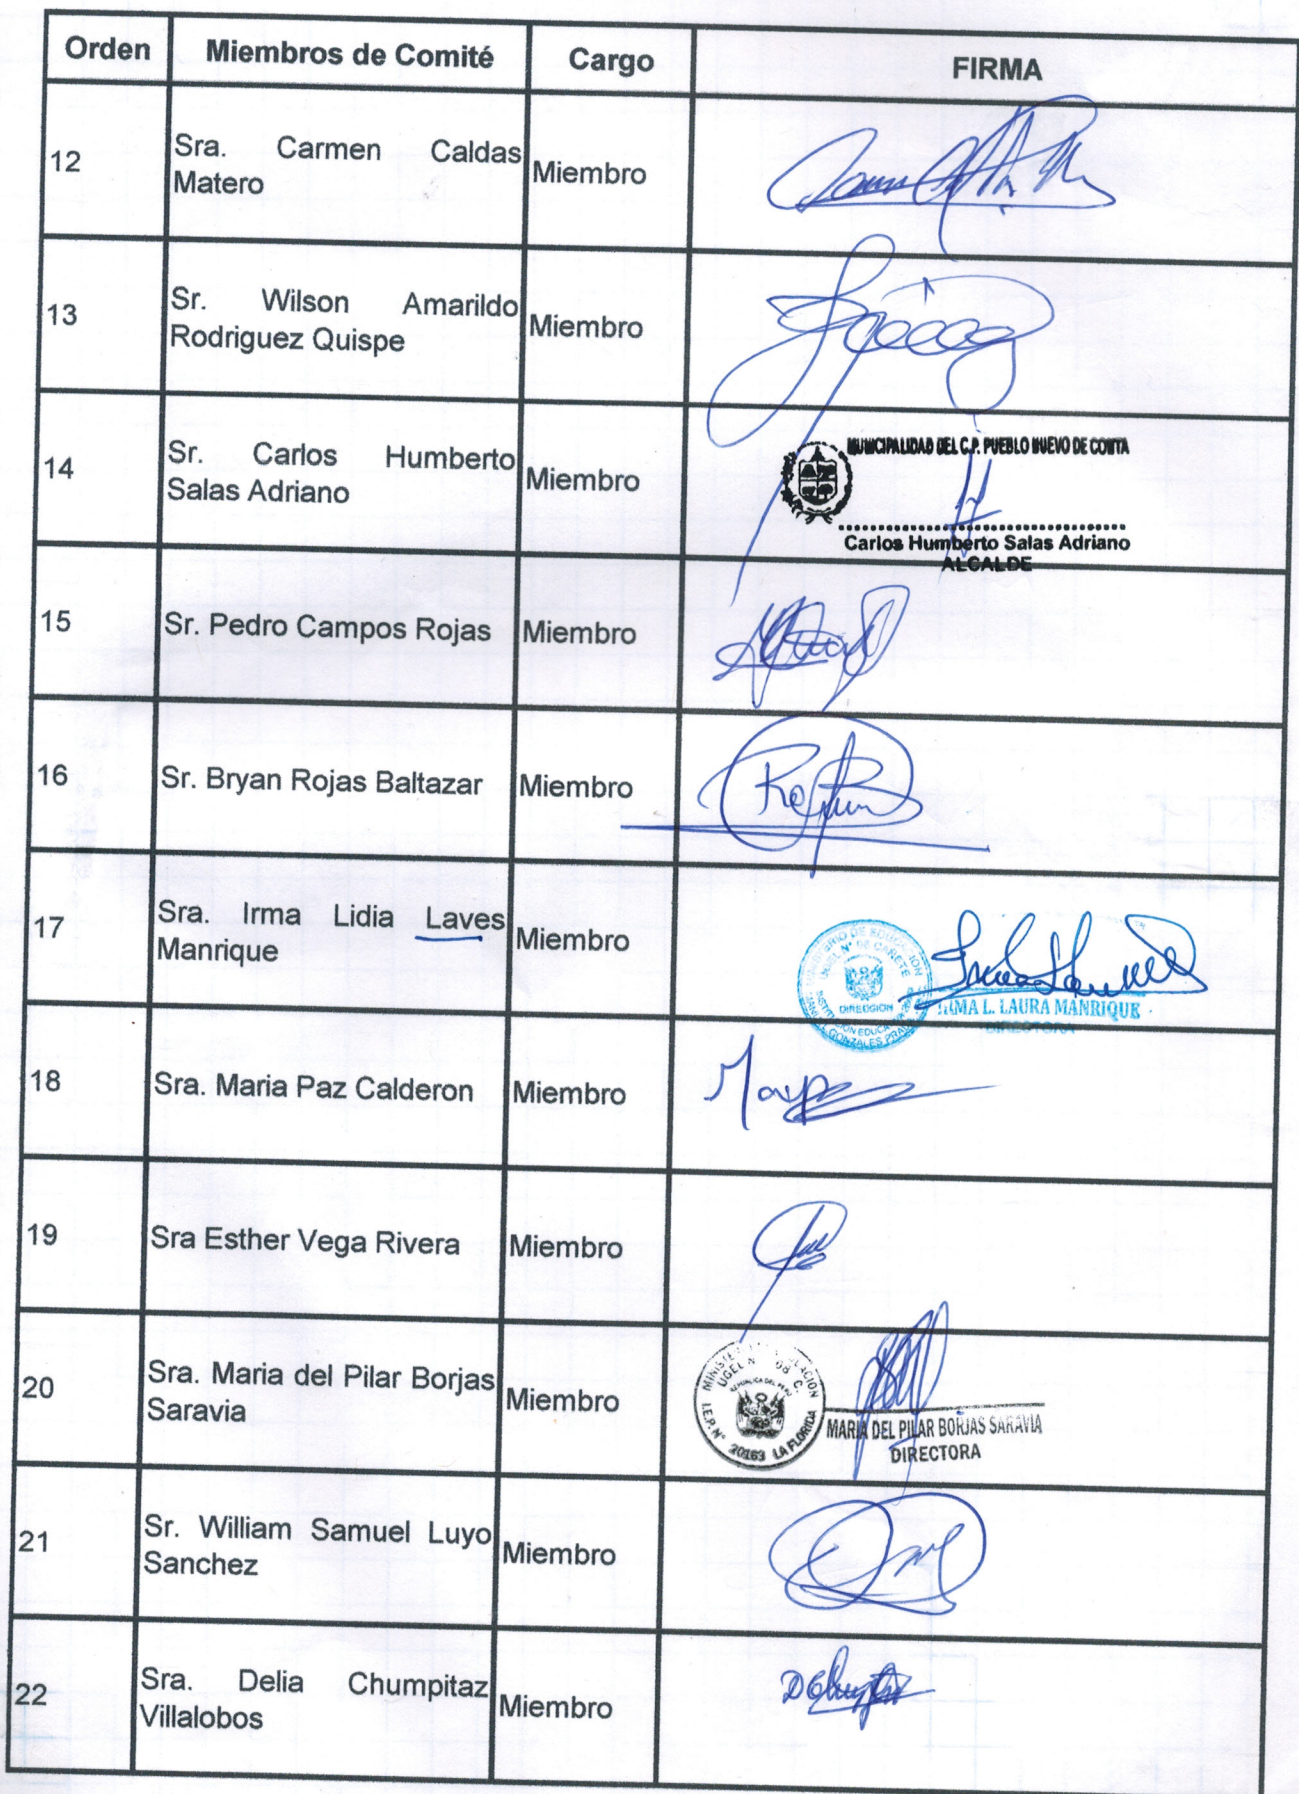 Orden Miembros de Comité Cargo FIRMA
12 Sra. Carmen Caldas Miembro
Matero
13 Sr. Wilson Amarildo Miembro
Rodriguez Quispe
14 Sr. Carlos Humberto Miembro
Salas Adriano
MUNICIPALIDAD DEL C.P. PUEBLO NUEVO DE CONTA
Carlos Humberto Salas Adriano
ALCALDE
15 Sr. Pedro Campos Rojas Miembro
16 Sr. Bryan Rojas Baltazar Miembro
17 Sra. Irma Lidia Laves Miembro
Manrique
MINISTERIO DE EDUCACION
UGEL N° 08 CAÑETE
DIRECCION
GONZALES PRADA
IRMA L. LAURA MANRIQUE
DIRECTORA
18 Sra. Maria Paz Calderon Miembro
19 Sra Esther Vega Rivera Miembro
20 Sra. Maria del Pilar Borjas Miembro
Saravia
UGEL N 08 C.
REPUBLICA DEL PERU
I.E.P. N° 20163 LA FLORIDA
MARIA DEL PILAR BORJAS SARAVIA
DIRECTORA
21 Sr. William Samuel Luyo Miembro
Sanchez
22 Sra. Delia Chumpitaz Miembro
Villalobos